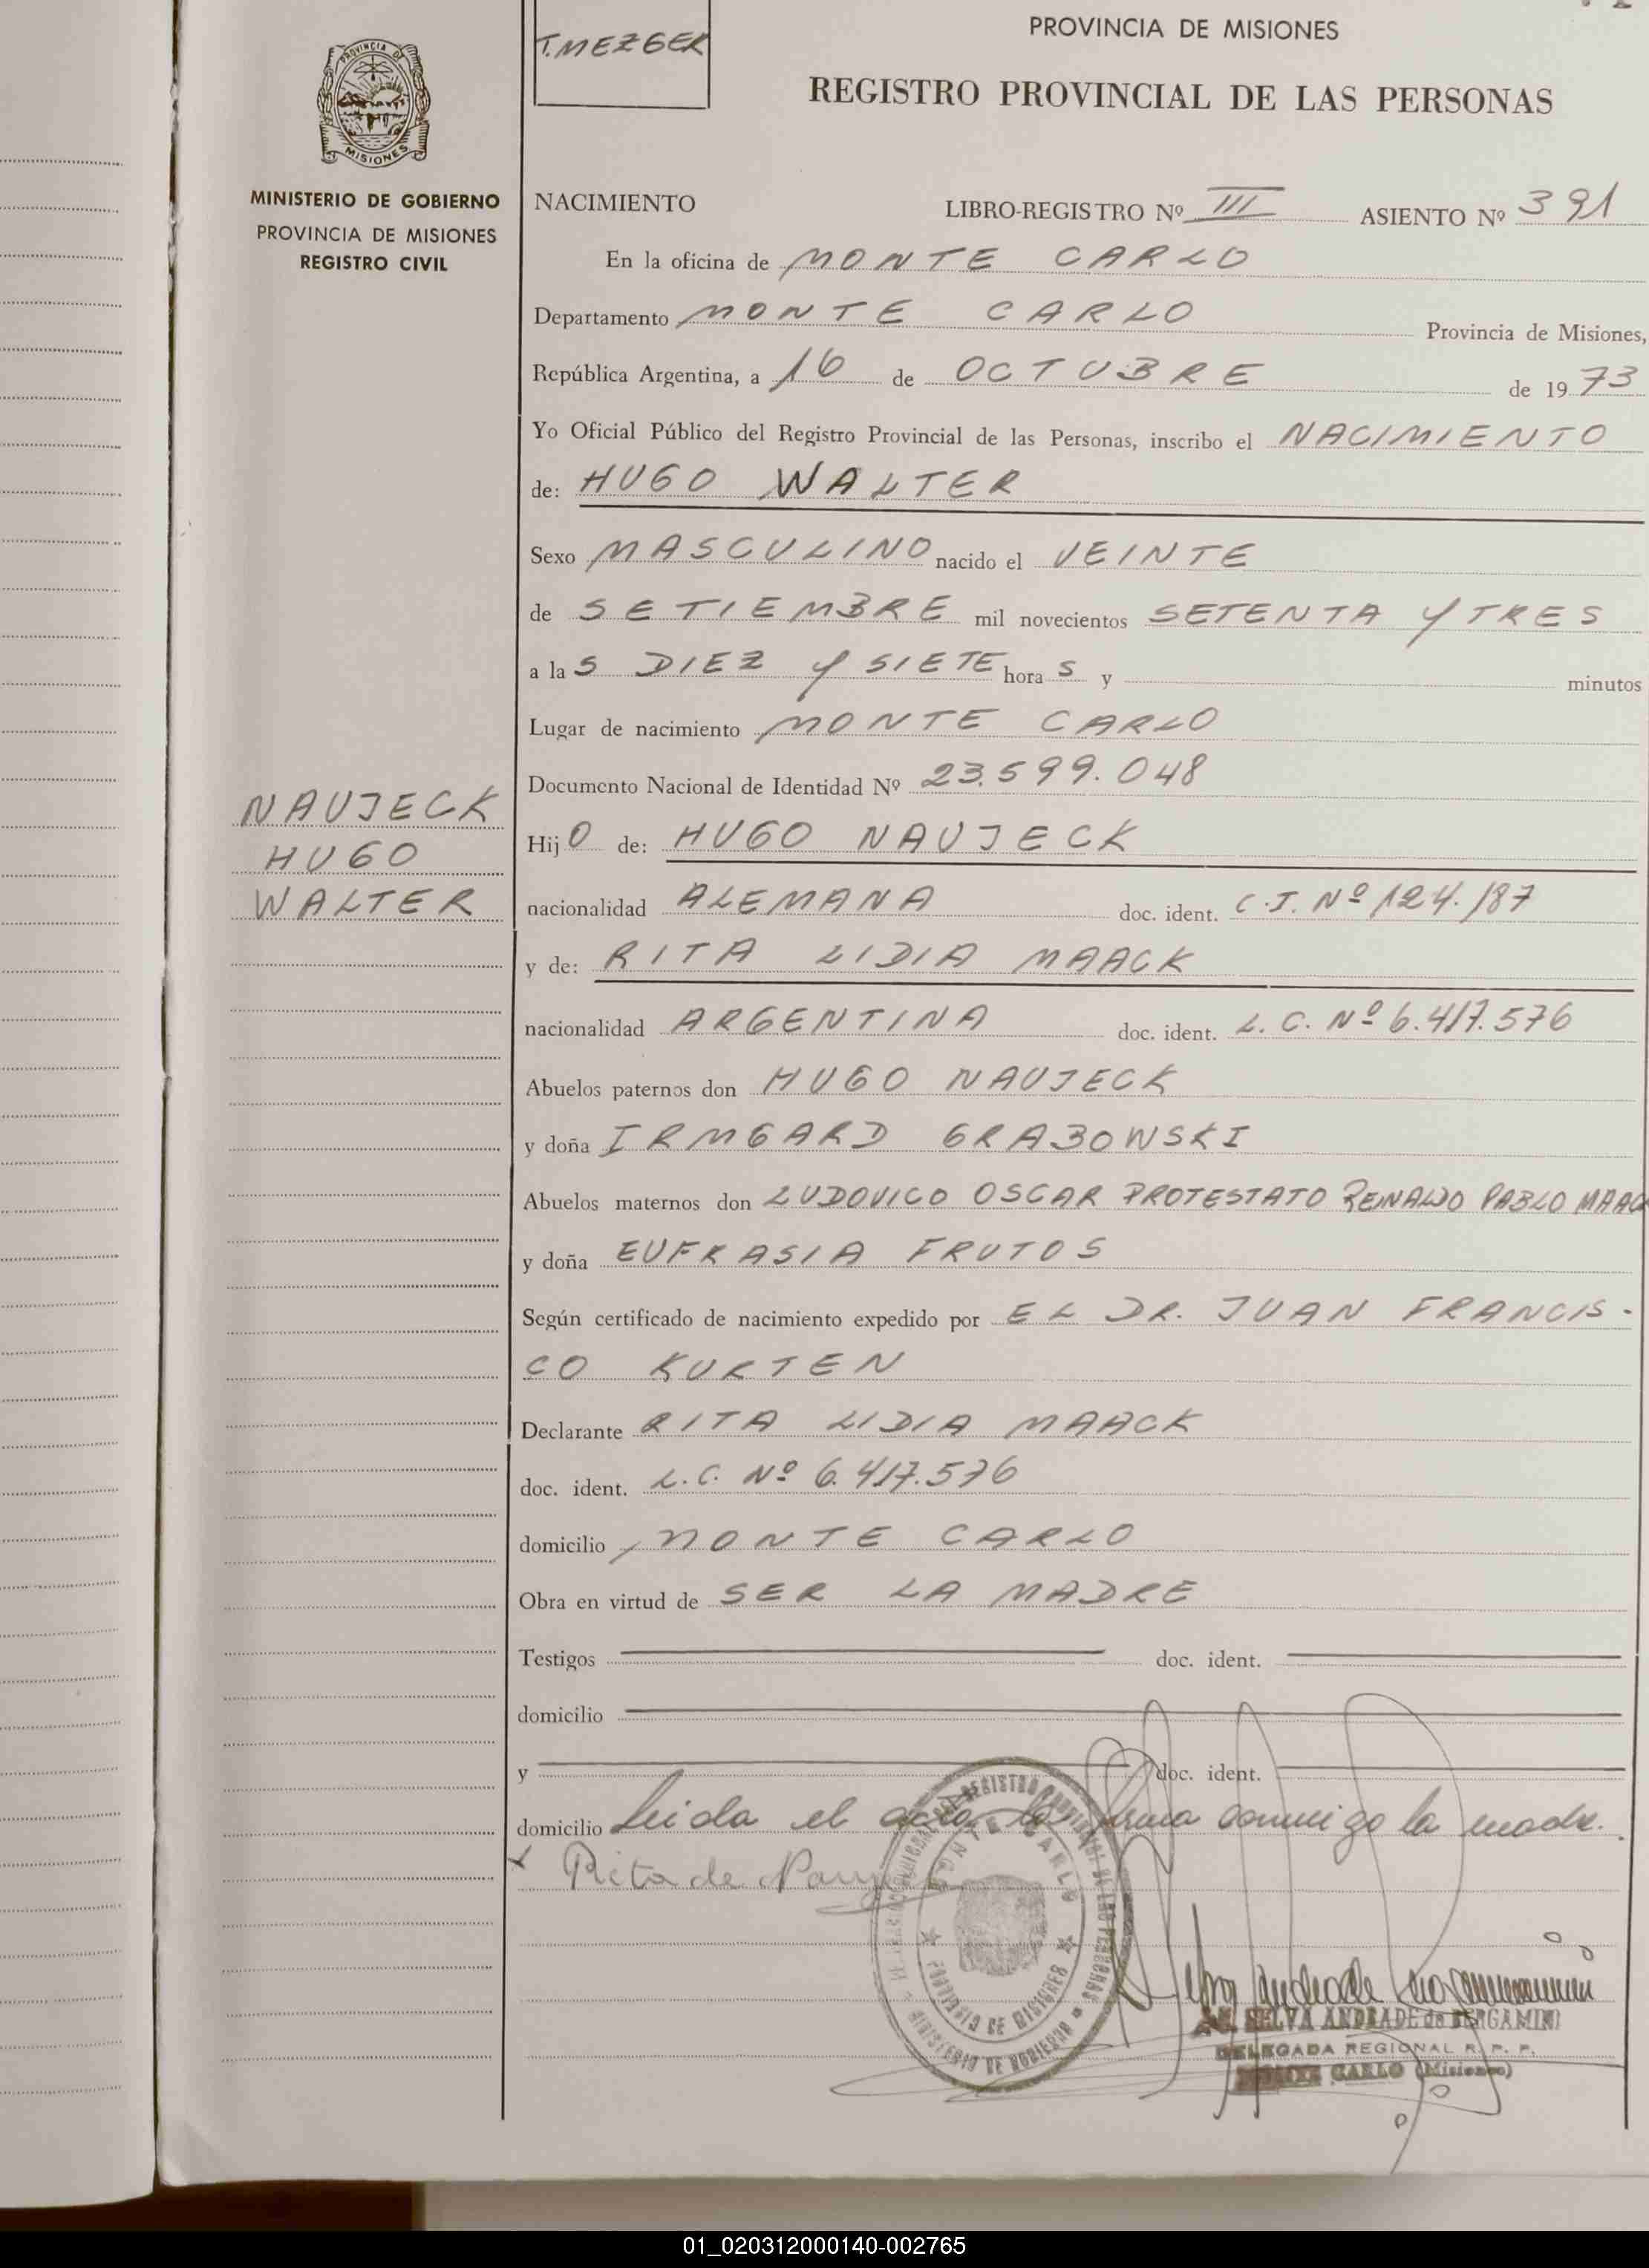 T. MEZGER
PROVINCIA DE MISIONES
REGISTRO PROVINCIAL DE LAS PERSONAS
PROVINCIA DE
MISIONES
MINISTERIO DE GOBIERNO
PROVINCIA DE MISIONES
REGISTRO CIVIL
NACIMIENTO LIBRO-REGISTRO Nº III ASIENTO Nº 391
En la oficina de MONTE CARLO
Departamento MONTE CARLO Provincia de Misiones,
República Argentina, a 16 de OCTUBRE de 1973
Yo Oficial Público del Registro Provincial de las Personas, inscribo el NACIMIENTO
de: HUGO WALTER
Sexo MASCULINO nacido el VEINTE
de SETIEMBRE mil novecientos SETENTA Y TRES
a las DIEZ Y SIETE horas y minutos
Lugar de nacimiento MONTE CARLO
Documento Nacional de Identidad Nº 23.599.048
NAUJECK
HUGO
WALTER
Hijo de: HUGO NAUJECK
nacionalidad ALEMANA doc. ident. C.I. Nº 124./87
y de: RITA LIDIA MAACK
nacionalidad ARGENTINA doc. ident. L. C. Nº 6.417.576
Abuelos paternos don HUGO NAUJECK
y doña IRMGARD GRABOWSKI
Abuelos maternos don LUDOVICO OSCAR PROTESTATO REINALDO PABLO MAACK
y doña EUFRASIA FRUTOS
Según certificado de nacimiento expedido por EL DR. JUAN FRANCIS-
CO KURTEN
Declarante RITA LIDIA MAACK
doc. ident. L.C. Nº 6.417.576
domicilio MONTE CARLO
Obra en virtud de SER LA MADRE
Testigos doc. ident.
domicilio
y doc. ident.
domicilio Leida el acta la firma conmigo la madre.
x Rita de
MONTE CARLO
PROVINCIA DE MISIONES
MINISTERIO DE GOBIERNO
SELVA ANDRADE de BERGAMINI
DELEGADA REGIONAL R. P. P.
MONTE CARLO (Misiones)
01_020312000140-002765